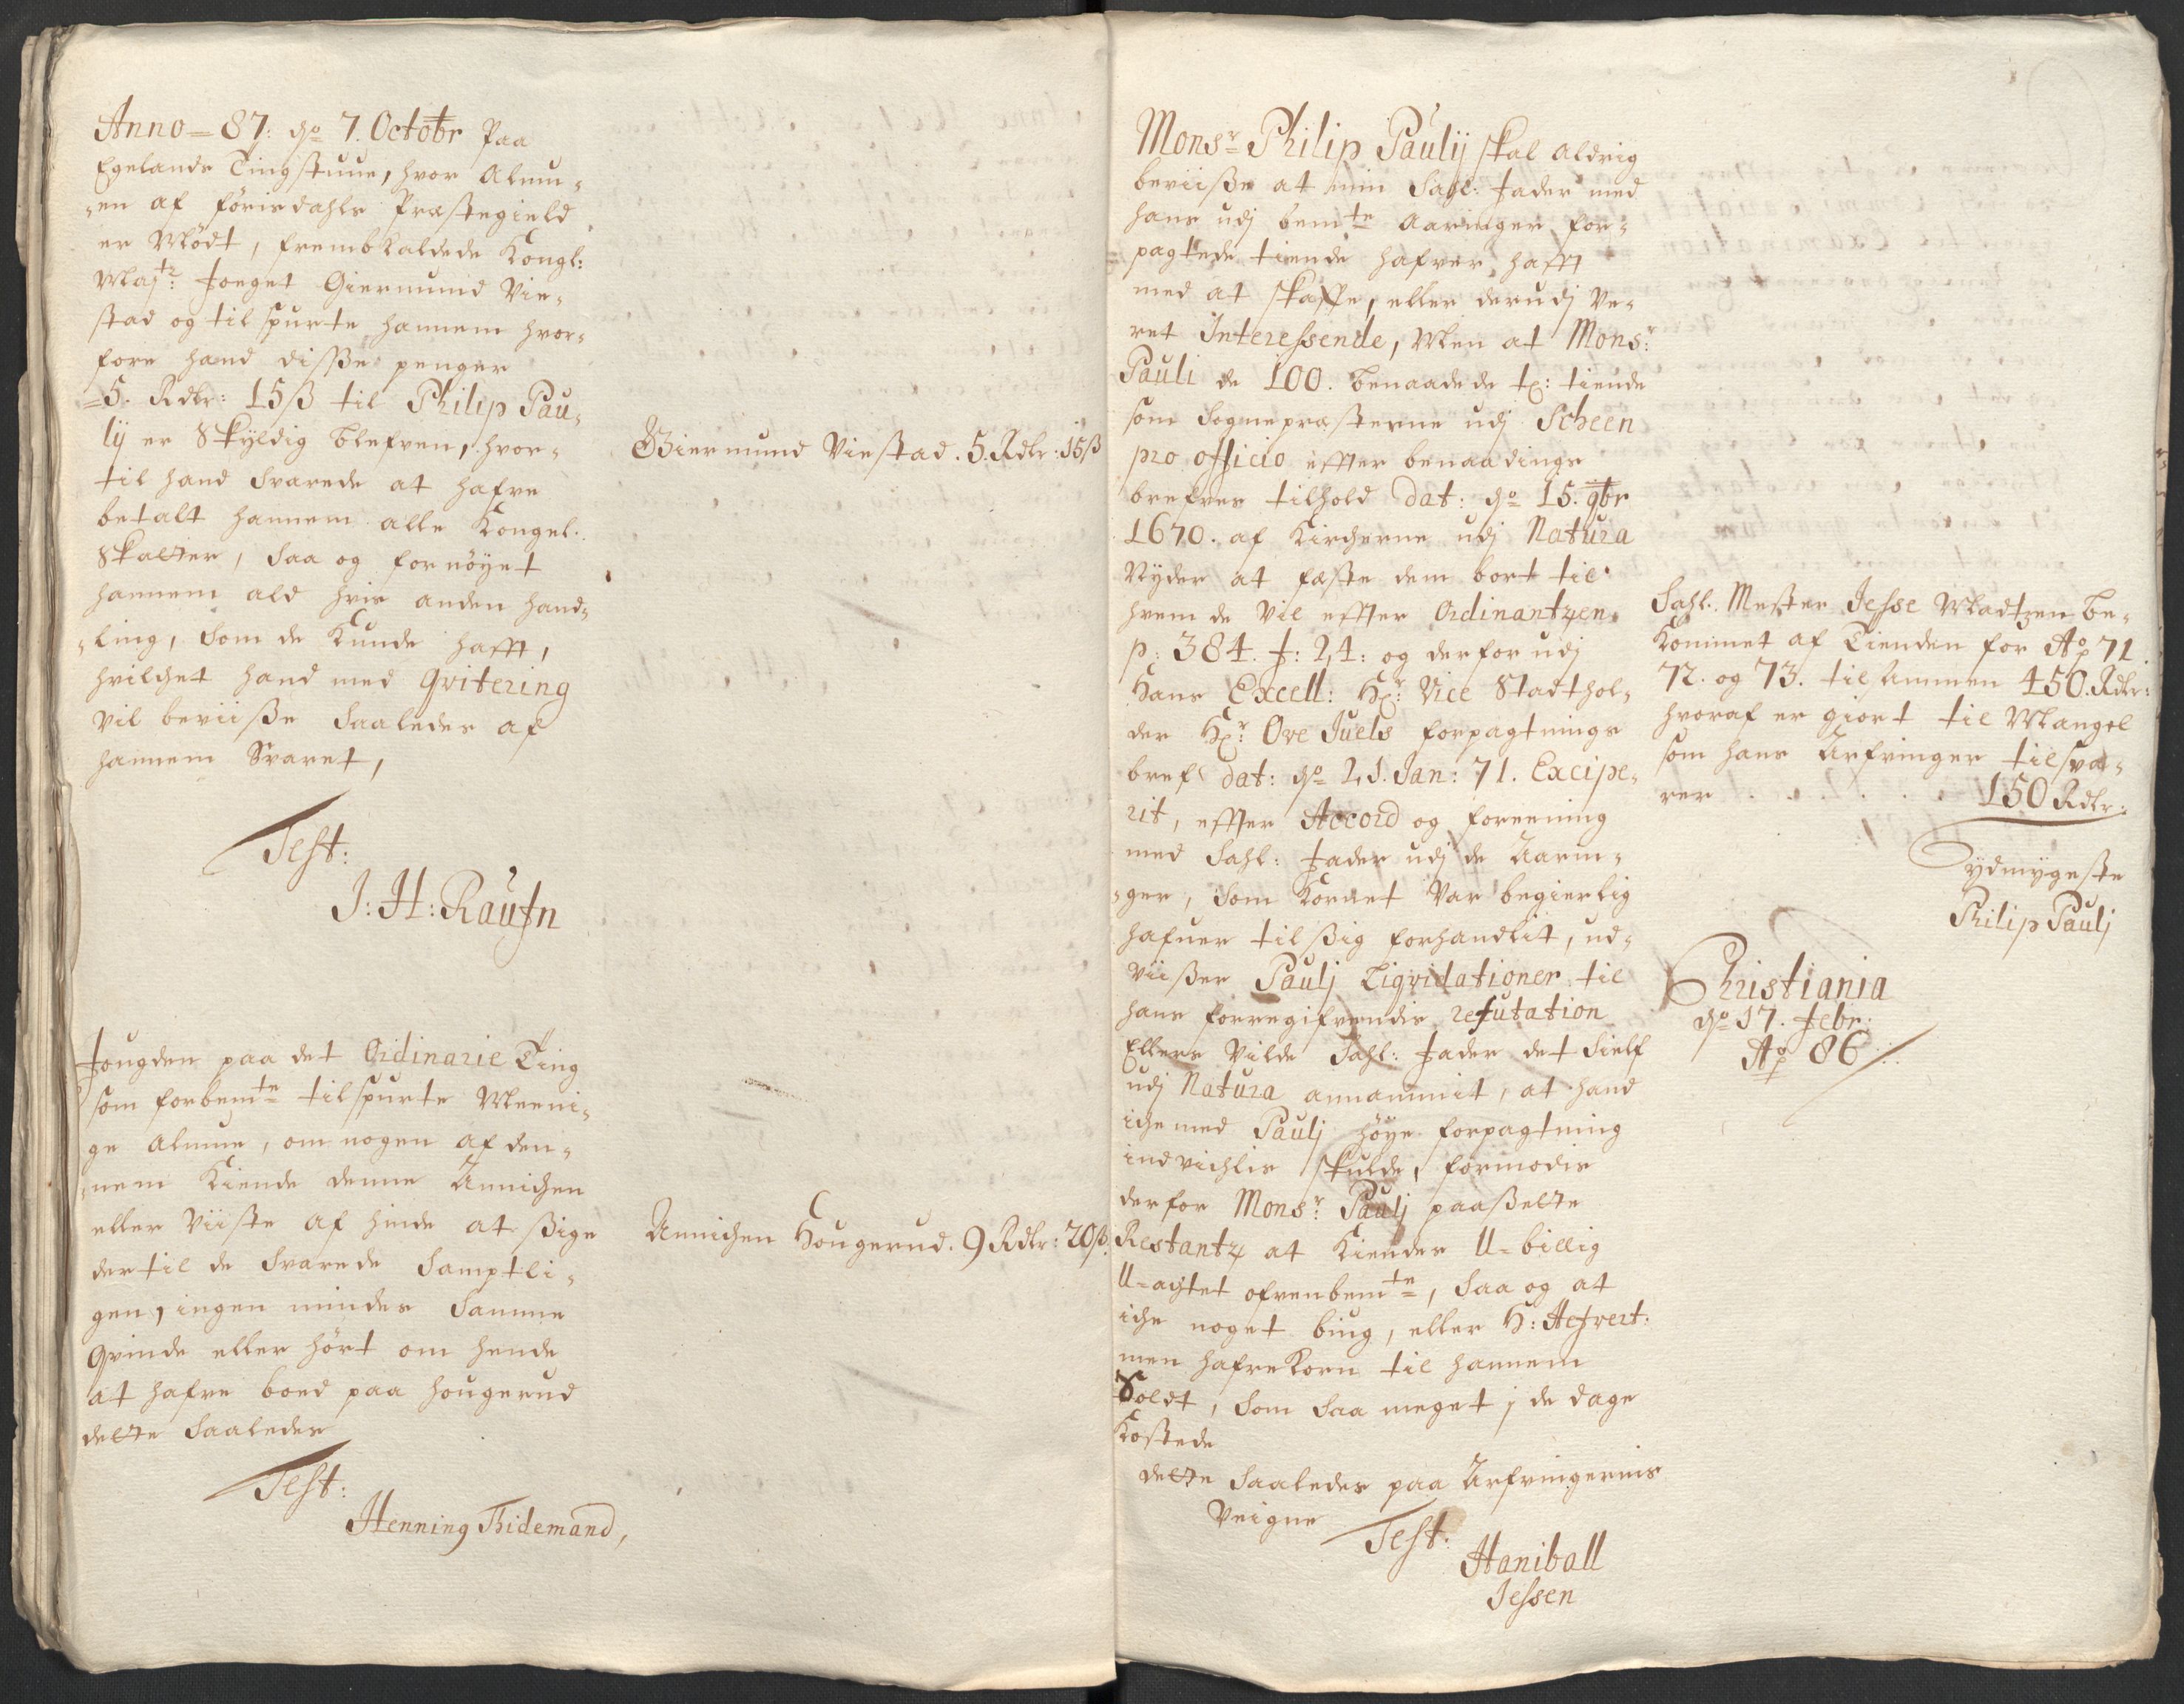 Anno=87: dº 7. Octobr Paa
Egelands Tingstuue, hvor Almu-
-en af förisdahls Præstegield
er Mödt, frembkaldede Kongl:
Maj:tz Foeget Giermund Vie-
stad og tilspurte hannem hvor-
fore hand disse penger
=5. Rdlr: 15ß til Philip Pau-
lÿ er Skÿldig blefven, hvor-
til hand Svarede at hafve
betalt hannem alle Kongel:
Skatter, Saa og fornöÿet
hannem ald hvis anden hand-
-ling, Som de Kunde hafft,
hvilchet hand med Qvitering
vil beviise Saaledes af
hannem Svaret,
Test:
J: H: Raufn
Giermund Viestad. 5. Rdlr: 15ß
Fougden paa det Ordinarie Ting
som forbemte tilspurte Meeni-
ge Almue, om nogen af den-
-nem Kiende denne Annichen
eller Viiste af hinde at sige
dertil de Svarede Samptli-
gen, ingen mindes Samme
Qvinde eller hört om hende
at hafve boed paa Hougerud
dette Saaledes
Test:
Henning Tidemand,
Annichen Hougerud. 9 Rdlr: 20ß.
Monsr Philip Paulÿ skal aldrig
beviise at min Sahl: Fader med
hans udj bemte Aaringer for-
pagtede tiende hafver hafft
med at skaffe, eller derudj Ve-
ret Interessende, Men at Monsr:
Pauli de 100. benaadede tr: tiende
som Sognepræsterne udj Scheen
pro officio effter benaadings
brefves tilhold dat: dº 15. 9br
1670. af Kircherne udj Natura
Nÿder at fæste dem bort til
hvem de Vil effter Ordinantzen
p: 384. f: 24: og derfor udj
Hans Excell: Hr: Vice Stadthol-
der Hr: Ove Juels forpagtnings
bref dat: dº 21. Jan: 71. Excipe-
rit, effter Accord og foreening
med Sahl: Fader udj de Aarin-
-ger, Som Kornet Var begierlig
hafuer til sig forhandlit, ud-
viiser Paulj Liqvidationer til
hans forregifvendis refutation
Ellers Vilde Sahl: Fader det Sielf
udj Natura annammit, at hand
iche med Paulj höÿe forpagtning
indvichlis skulde, formodis
derfor Monsr: Paulj paasette
Restantz at Kiendes U-billig
U-agtet ofvenbemte, Saa og at
iche noget biug, eller H:
men hafre Korn til hannem
Soldt, Som Saa meget j de dage
Kostede
dette Saaledes paa Arfvingernis
Veigne
Test:
Haniball
Jessen
Sahl: Mester Jesse Madtzen be-
Kommet af Tienden for Aº 71.
72. og 73. tilsammen 450. Rdlr:
hvoraf er giort til Mangel
som hans Arfvinger tilsva-
rer . . . . . 150 Rdlr:
Ÿdmÿgeste
Philip Paulj
Christiania
dº 17. Febr:
Aº 86